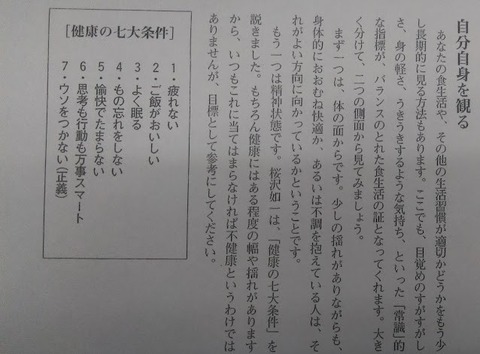 自分自身を観る
あなたの食生活や、その他の生活習慣が適切かどうかをもう少
し長期的に見る方法もあります。ここでも、目覚めのすがすがし
さ、身の軽さ、うきうきするような気持ち、といった「常識」的
な指標が、バランスのとれた食生活の証となってくれます。大き
く分けて、二つの側面から見てみましょう。
まず一つは、体の面からです。少しの揺れがありながらも、
身体的におおむね快適か、あるいは不調を抱えている人は、そ
れがよい方向に向かっているかということです。
もう一つは精神状態です。桜沢如一は、「健康の七大条件」を
説きました。もちろん健康にはある程度の幅や揺れがあります
から、いつもこれに当てはまらなければ不健康というわけでは
ありませんが、目標として参考にしてください。
［健康の七大条件］
1・疲れない
2・ご飯がおいしい
3・よく眠る
4・もの忘れをしない
5・愉快でたまらない
6・思考も行動も万事スマート
7・ウソをつかない（正義）